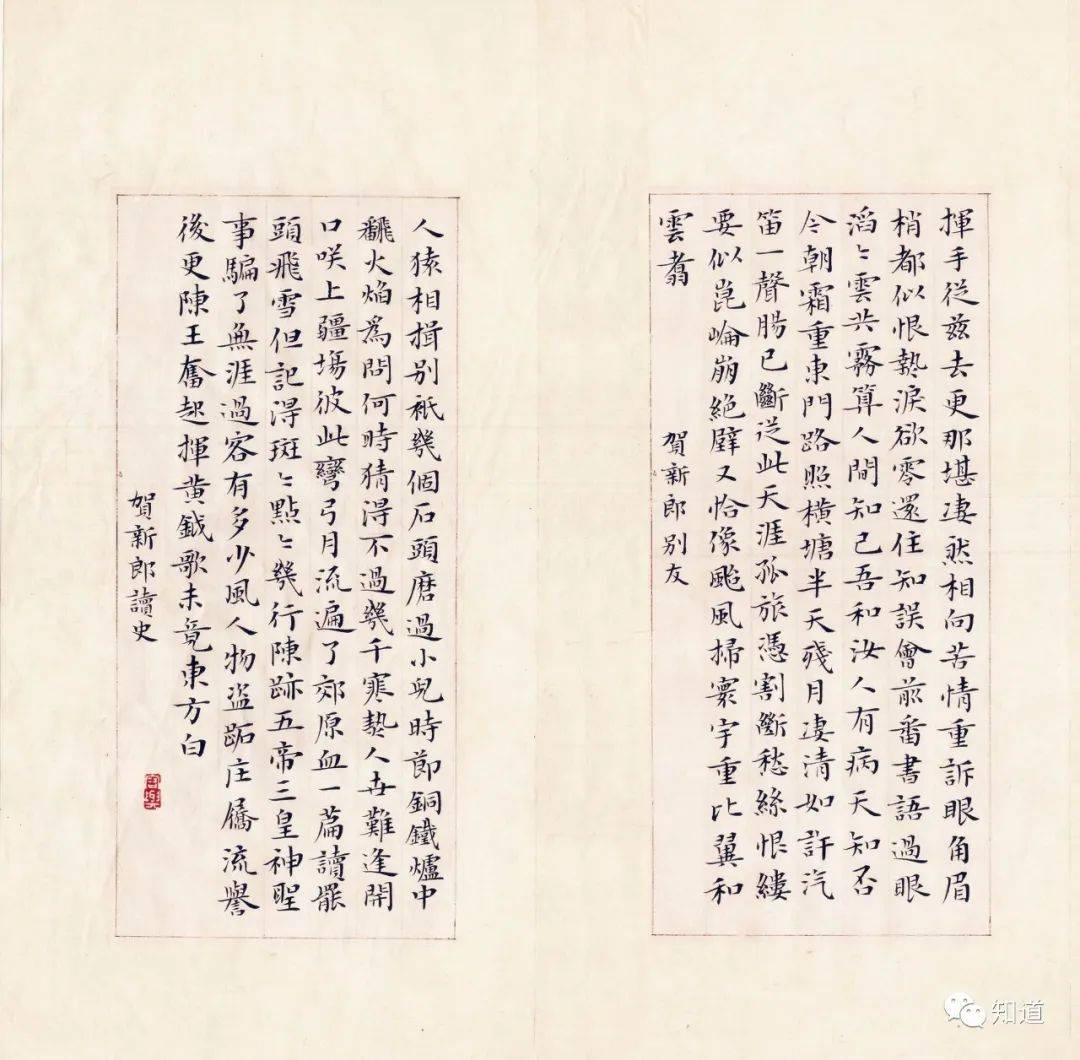 揮手從兹去更那堪凄然相向苦情重訴眼角眉
梢都似恨熱淚欲零還住知誤會前番書語過眼
滔〻雲共霧算人間知己吾和汝人有病天知否
今朝霜重東門路照横塘半天殘月凄清如許汽
笛一聲腸已斷從此天涯孤旅憑割斷愁絲恨縷
要似崑崘崩絶壁又恰像颱風掃寰宇重比翼和
雲翥
賀新郎别友
人猿相揖别衹幾個石頭磨過小兒時節銅鐵爐中
飜火焰爲問何時猜得不過幾千寒熱人世難逢開
口咲上疆塲彼此彎弓月流遍了郊原血一篇讀罷
頭飛雪但記得斑〻點〻幾行陳跡五帝三皇神聖
事騙了無涯過客有多少風人物盜跖庄屩流譽
後更陳王奮起揮黄鉞歌未竟東方白
賀新郎讀史
知道